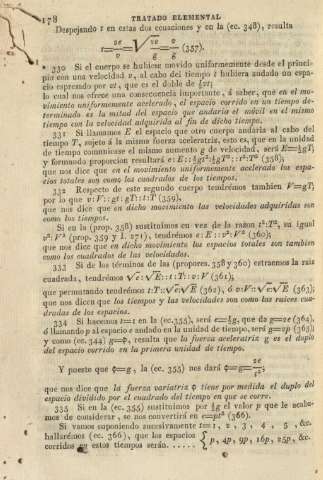 178 TRATADO ELEMENTAL
Despejando t en estas dos ecuaciones y en la (ec. 348), resulta
t=2e/v=√2e/g=v/g (357).
330 Si el cuerpo se hubiese movido uniformemente desde el princi-
pio con una velocidad v, al cabo del tiempo t hubiera andado un espa-
cio expresado por vt, que es el doble de ½vt;
lo cual nos ofrece una consecuencia importante, á saber, que en el mo-
vimiento uniformemente acelerado, el espacio corrido en un tiempo de-
terminado es la mitad del espacio que andaria el móvil en el mismo
tiempo con la velocidad adquirida al fin de dicho tiempo.
331 Si llamamos E el espacio que otro cuerpo andaria al cabo del
tiempo T, sujeto á la misma fuerza aceleratriz, esto es, que en la unidad
de tiempo comunicase el mismo aumento g de velocidad, será E=½gT²
y formando proporcion resultará e:E::½gt²:½gT²::t²:T² (358);
que nos dice que en el movimiento uniformemente acelerado los espa-
cios totales son como los cuadrados de los tiempos.
332 Respecto de este segundo cuerpo tendrémos tambien V=gT;
por lo que v:V::gt:gT::t:T (359),
que nos dice que en dicho movimiento las velocidades adquiridas son
como los tiempos.
Si en la (prop. 358) sustituimos en vez de la razon t²:T², su igual
v²:V² (prop. 359 y I. 271), tendrémos e:E::v²:V² (360);
que nos dice que en dicho movimiento los espacios totales son tambien
como los cuadrados de las velocidades.
333 Si de los términos de las (propores. 358 y 360) extraemos la raiz
cuadrada, tendrémos √e:√E::t:T::v:V (361),
que permutando tendrémos t:T::√e:√E (362), ó v:V::√e:√E (363);
que nos dicen que los tiempos y las velocidades son como las raices cua-
dradas de los espacios.
334 Si hacemos t=1 en la (ec. 355), será e=½g, que da g=2e (364),
ó llamando p al espacio e andado en la unidad de tiempo, será g=2p (365);
y como (ec. 344) g=φ, resulta que la fuerza aceleratriz g es el duplo
del espacio corrido en la primera unidad de tiempo.
Y puesto que φ=g, la (ec. 355) nos dará φ=g=2e/t²,
que nos dice que la fuerza variatriz φ tiene por medida el duplo del
espacio dividido por el cuadrado del tiempo en que se corre.
335 Si en la (ec. 355) sustituimos por ½g el valor p que le acaba-
mos de considerar, se nos convertirá en e=pt² (366).
Si vamos suponiendo sucesivamente t=1, 2, 3, 4, 5, &c.
hallarémos (ec. 366), que los espacios
corridos en estos tiempos serán...... { p, 4p, 9p, 16p, 25p, &c.